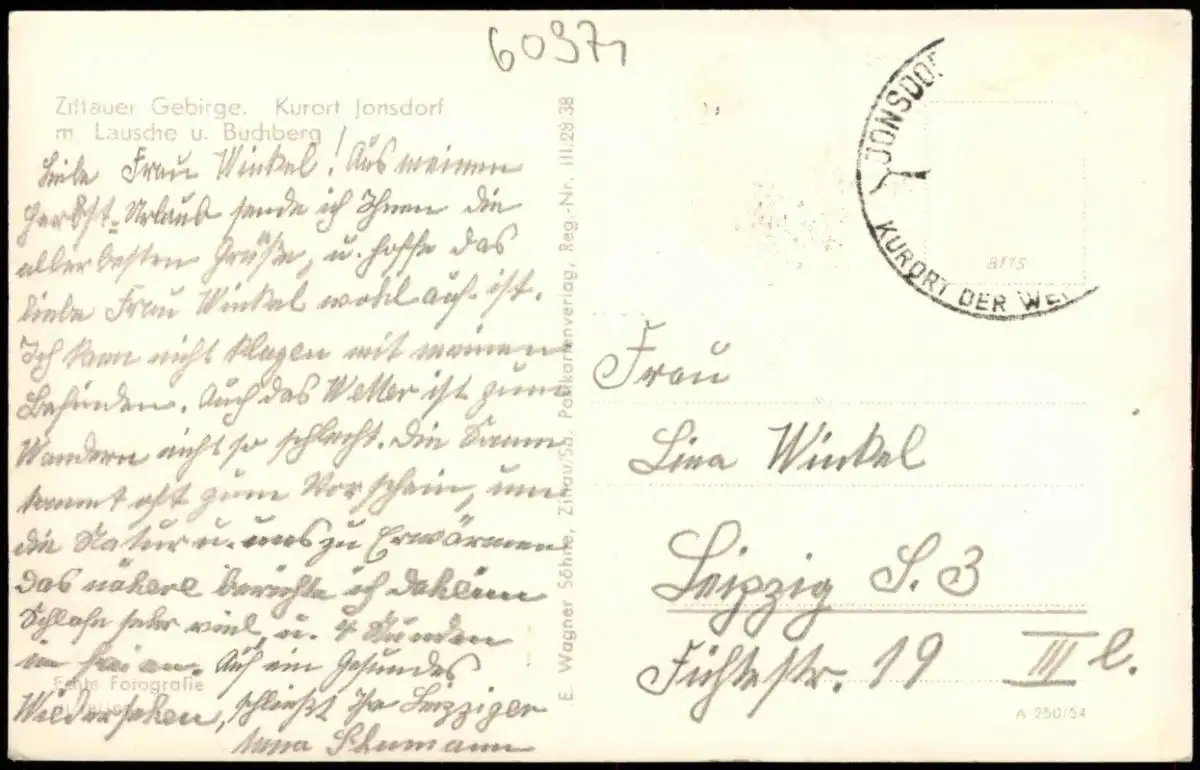 60971
Zittauer Gebirge. Kurort Jonsdorf
m. Lausche u. Buchberg
Liebe Frau Winkel! Aus meinen
Herbst-Urlaub sende ich Ihnen die
allerbesten Grüße, u. hoffe das
liebe Frau Winkel wohl auf ist.
Ich kann nicht klagen mit meinen
Befinden. Auch das Wetter ist zum
Wandern nicht so schlecht. Die Sonne
kommt oft zum Vorschein, um
die Natur u. uns zu Erwärmen
das nähere berichte ich daheim
Schlafe sehr viel, u. 4 Stunden
im freien. Auf ein Gesundes
Wiedersehen, schließt Ihre Leipziger
Schumann
Echte Fotografie
E. Wagner Söhne, Zittau/Sa. Postkartenverlag, Reg.-Nr. III.28.38
JONSDOR
KURORT DER WE
Frau
Lina Winkel
Leipzig S. 3
Fichtestr. 19 III l.
A 250/54